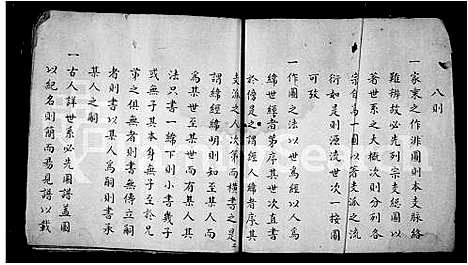 八則
一家乘之作非圖則本支脉絡
難辨故必先列宗支總圖以
著世系之大槪次則分列各
宗自為一圖以著支派之流
衍如是則源流世次一按圖
可攷
一作圖之法以世為經以人為
緯世經者第序其世次直書
於傍是之謂經人緯者序其
支派之人次第而橫書之是
謂緯經緯明則知某人而
為某世至某世而有某人其
法只書一緯下則小書幾子
或無子其本身無子至於兄
弟之俱無者則書無傳立嗣
者則書以某人為嗣則書承
某人之嗣
一古人詳世系必先圖譜蓋圖
以紀名則簡而易見譜以載